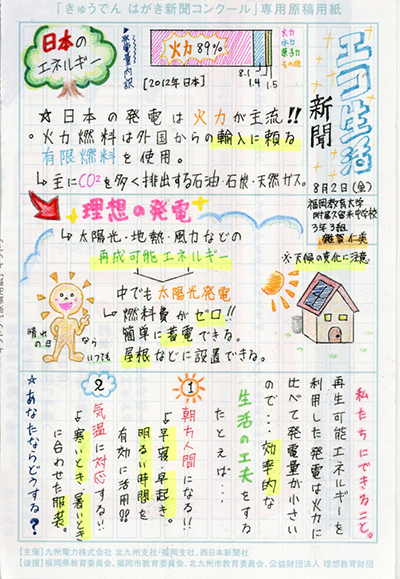 「きゅうでん はがき新聞コンクール」専用原稿用紙
エコ生活
新聞
8月2日(金)
福岡教育大学
附属久留米中学校
3年3組
雑賀 仁美
※天候の変化に注意
日本の
エネルギー
発電量内訳
火力 89%
8.1
1.4
1.5
火力
水力
原子力
その他
[2012年日本]
☆日本の発電は火力が主流!!
。火力燃料は外国からの輸入に頼る
有限燃料を使用。
↳主にCO2を多く排出する石油・石炭・天然ガス。
理想の発電
↳太陽光・地熱・風力などの
再成可能エネルギー
中でも太陽光発電
↳燃料費がゼロ!!
簡単に蓄電できる。
屋根などに設置できる。
晴れの日
なら
いつも
私たちにできること。
再生可能エネルギーを
利用した発電は火力に
比べて発電量が小さい
ので…効率的な
生活の工夫をする
たとえば…
1
朝方人間になる!!
↳早寝・早起き。
明るい時間を
有効に活用!!
2
気温に対応する!!
↳寒いとき、暑いとき
に合わせた服装。
☆あなたならどうする?
【主催】九州電力株式会社 北九州支社・福岡支社、西日本新聞社
【後援】福岡県教育委員会、福岡市教育委員会、北九州市教育委員会、公益財団法人 理想教育財団